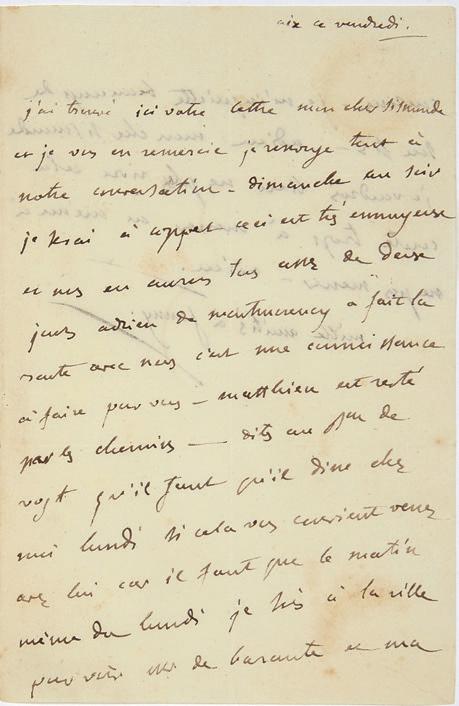 aix ce vendredi.
j'ai trouvé ici votre lettre mon cher Sismonde
et je vous en remercie je renvoye tout à
notre conversation - dimanche au soir
je serai à coppet ceci est très ennuyeux
et nous en aurons tous assez de deux
jours adrien de montmorency a fait la
route avec nous c'est une connaissance
à faire pour vous - matthieu est resté
par les chemins — dites au de
vogt qu'il faut qu'il dine chez
moi lundi si cela vous convient venez
avec lui car il faut que le matin
même du lundi je sois à la ville
pour voir de barante et ma